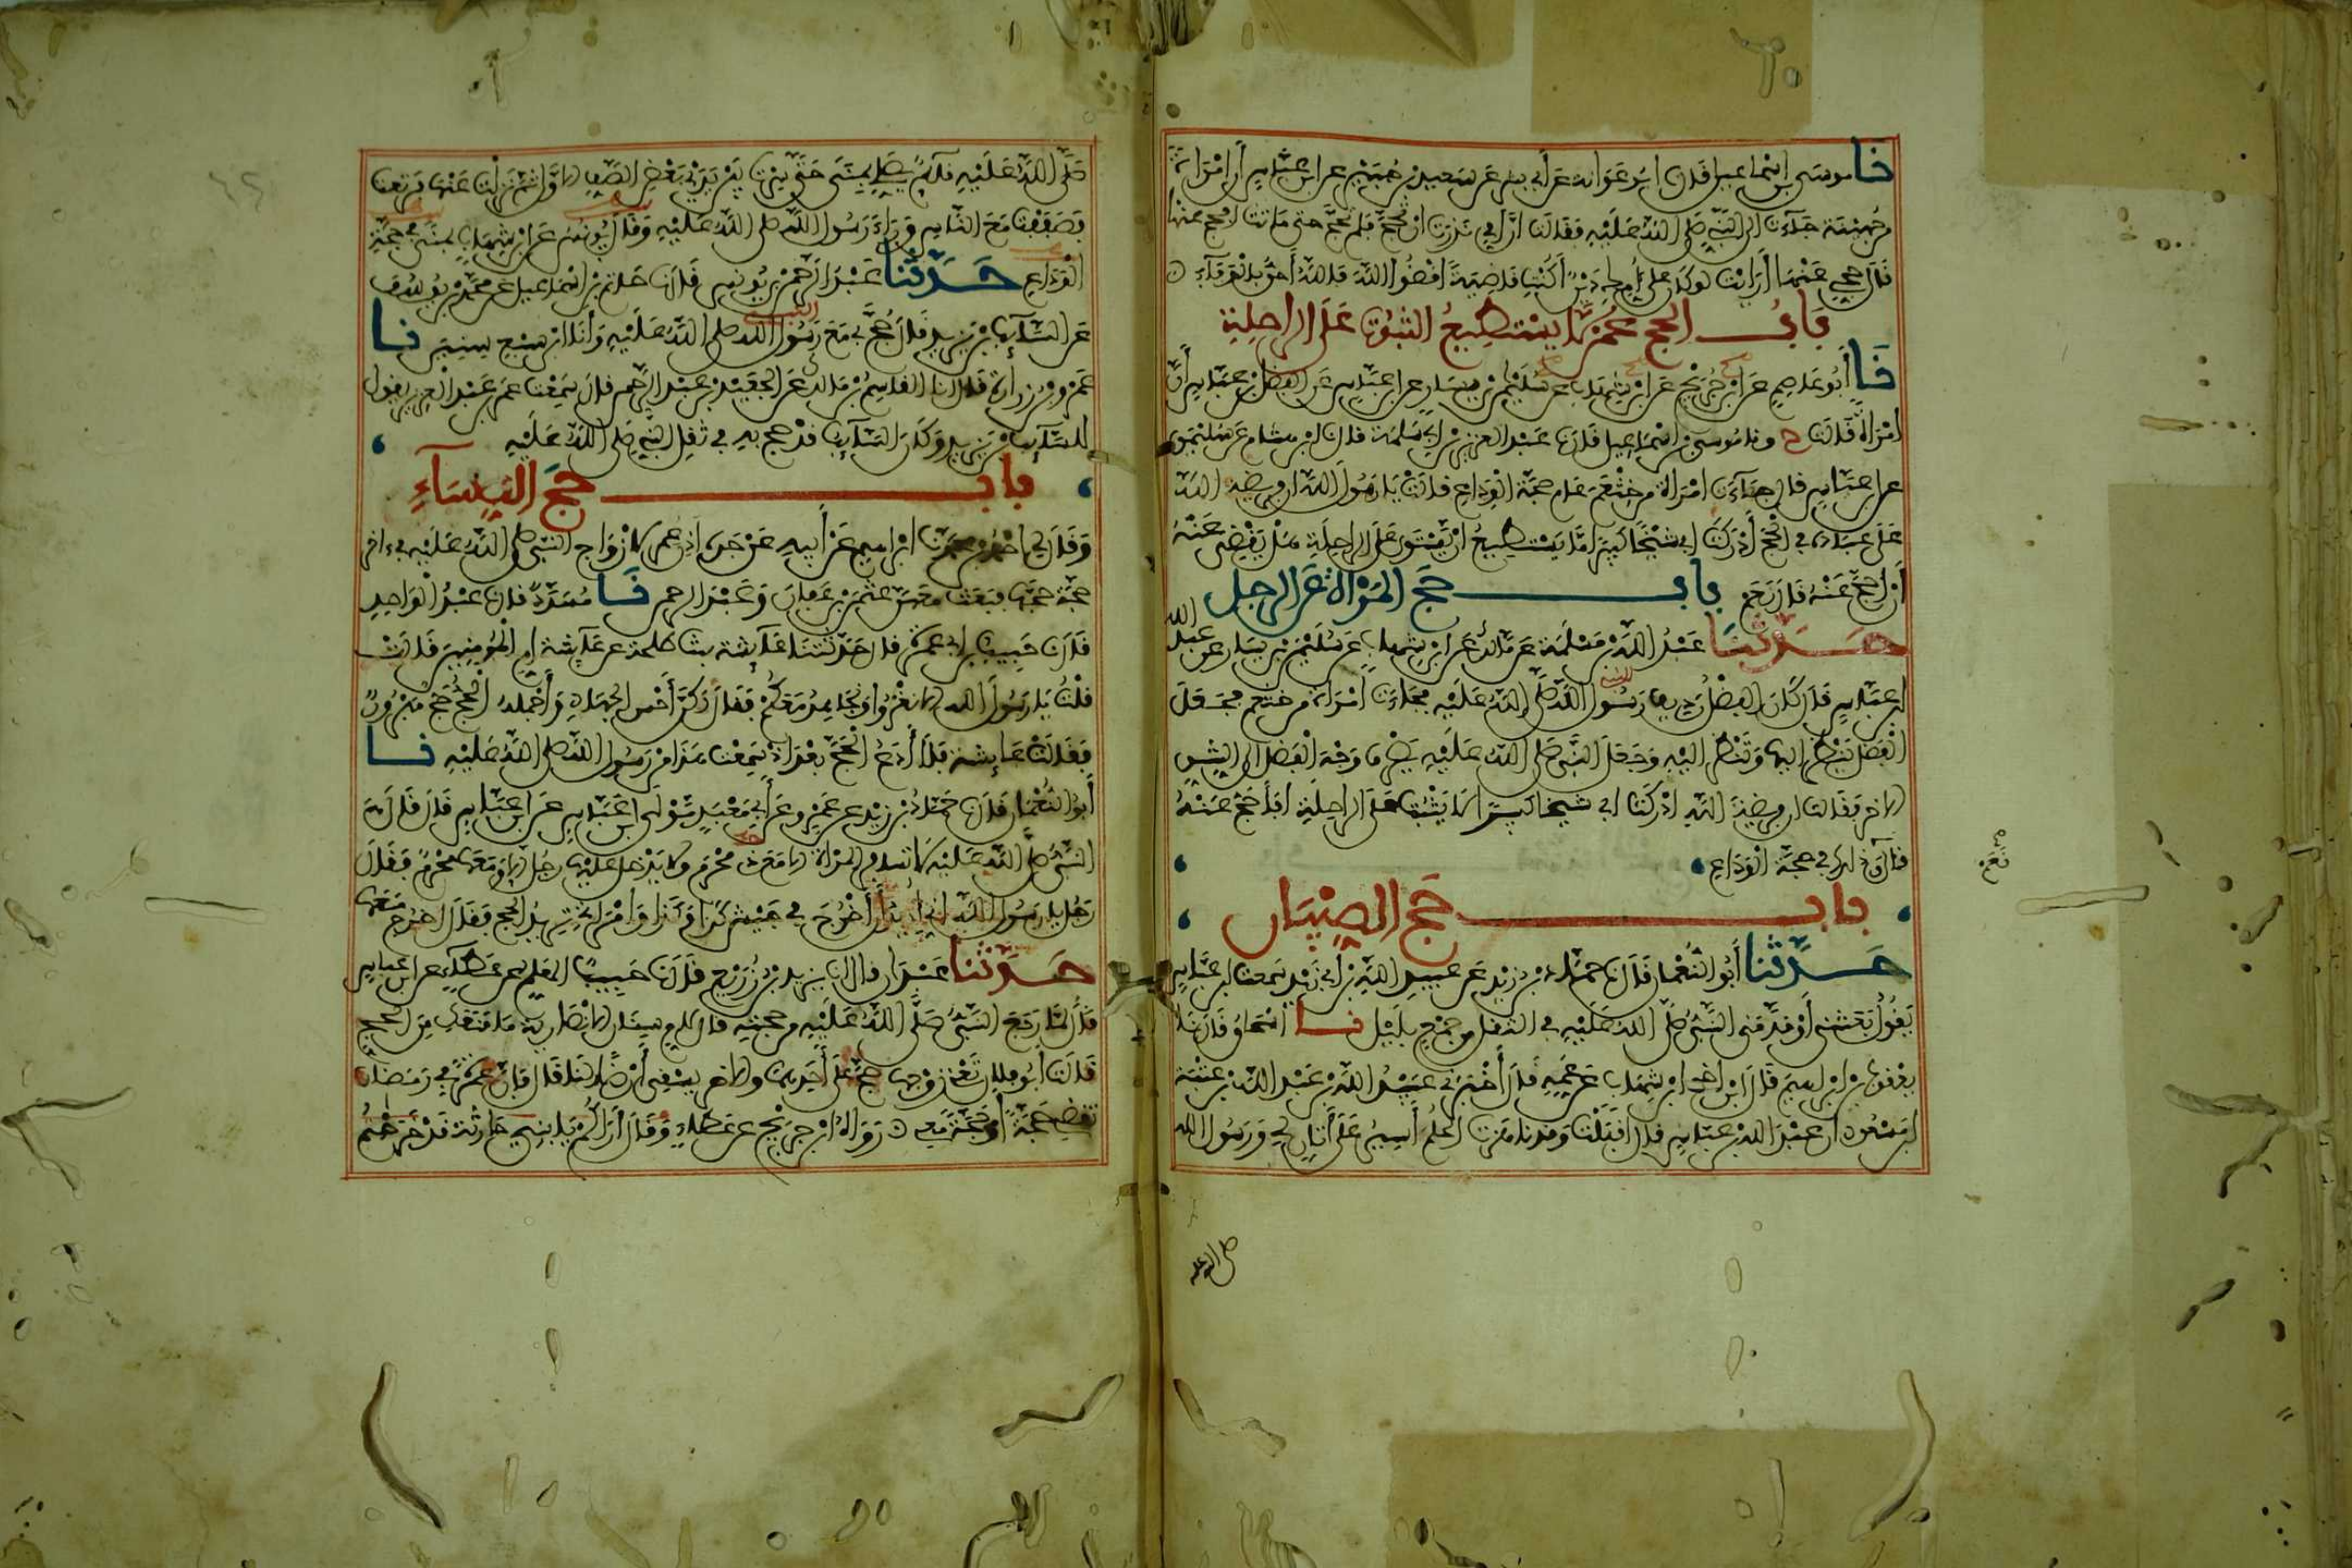 نا موسى بن اسماعيل قال نا ابو عوانة عن أبي بشر عن سعيد بن جبير عن ابن عباس أن امرأة
من جهينة جاءت الى النبي صلى الله عليه فقالت ان امي نذرت ان تحج فلم تحج حتى ماتت أفأحج عنها
قال حجي عنها أرأيت لو كان على أمك دين أكنت قاضية اقضوا الله فالله أحق بالوفاء
باب الحج عمن لا يستطيع الثبوت على الراحلة
نا أبو عاصم عن ابن جريج عن ابن شهاب عن سليمن بن يسار عن ابن عباس عن الفضل بن عباس أن
امرأة قالت ح ونا موسى بن اسماعيل قال نا عبد العزيز بن أبي سلمة قال نا ابن شهاب عن سليمن
عن ابن عباس قال جاءت امرأة من خثعم عام حجة الوداع قالت يا رسول الله ان فريضة الله
على عباده في الحج أدركت أبي شيخا كبيرا لا يستطيع ان يستوي على الراحلة هل يقضي عنه
أن أحج عنه قال نعم باب حج المرأة عن الرجل
حدثنا عبد الله بن مسلمة عن مالك عن ابن شهاب عن سليمن بن يسار عن عبد الله
ابن عباس قال كان الفضل رديف رسول الله صلى الله عليه فجاءت امرأة من خثعم فجعل
الفضل ينظر إليها وتنظر اليه وجعل النبي صلى الله عليه يصرف وجه الفضل الى الشق
الاخر فقالت ان فريضة الله ادركت ابي شيخا كبيرا لا يثبت على الراحلة افأحج عنه
قال نعم وذلك في حجة الوداع
باب حج الصبيان
حدثنا أبو النعمان قال نا حماد بن زيد عن عبيد الله بن أبي يزيد سمعت ابن عباس
يقول بعثني أو قدمني النبي صلى الله عليه في الثقل من جمع بليل نا اسحاق قال نا
يعقوب بن ابراهيم قال نا ابن أخي ابن شهاب عن عمه قال أخبرني عبيد الله بن عبد الله بن عتبة
ابن مسعود ان عبد الله بن عباس قال أقبلت وقد ناهزت الحلم أسير على أتان لي ورسول الله
صلى الله عليه
صلى الله عليه قائم يصلي بمنى حتى سرت بين يدي بعض الصف الاول ثم نزلت عنها فرتعت
فصففت مع الناس وراء رسول الله صلى الله عليه وقال يونس عن ابن شهاب بمنى في حجة
الوداع حدثنا عبد الرحمن بن يونس قال نا حاتم بن اسماعيل عن محمد بن يوسف
عن السائب بن يزيد قال حج بي مع رسول الله صلى الله عليه وأنا ابن سبع سنين نا
عمرو بن زرارة قال انا القاسم بن مالك عن الجعيد بن عبد الرحمن قال سمعت عمر بن عبد العزيز يقول
للسائب بن يزيد وكان السائب قد حج به في ثقل النبي صلى الله عليه
باب حج النساء
وقال لي احمد بن محمد نا ابراهيم عن أبيه عن جده اذن عمر لازواج النبي صلى الله عليه في ءاخر
حجة حجها فبعث معهن عثمن بن عفان وعبد الرحمن نا مسدد قال نا عبد الواحد
قال نا حبيب بن ابي عمرة قال حدثتنا عائشة بنت طلحة عن عائشة ام المؤمنين قالت
قلت يا رسول الله الا نغزوا ونجاهد معكم فقال لكن أحسن الجهاد وأجمله الحج حج مبرور
فقالت عائشة فلا أدع الحج بعد اذ سمعت هذا من رسول الله صلى الله عليه نا
أبو النعمان قال نا حماد بن زيد عن عمرو عن أبي معبد مولى ابن عباس عن ابن عباس قال قال
النبي صلى الله عليه لا تسافر المرأة الا مع ذي محرم ولا يدخل عليها رجل الا ومعها محرم فقال
رجل يا رسول الله اني أريد أن أخرج في جيش كذا وكذا وامرأتي تريد الحج فقال اخرج معها
حدثنا عبدان قال انا يزيد بن زريع قال نا حبيب المعلم عن عطاء عن ابن عباس
قال لما رجع النبي صلى الله عليه من حجته قال لام سنان الانصارية ما منعك من الحج
قالت أبو فلان تعني زوجها حج على أحدهما والاخر يسقي أرضا لنا قال فإن عمرة في رمضان
تقضي حجة أو حجة معي رواه ابن جريج عن عطاء وقال أراكم يا بني حارثة قد خرجتم